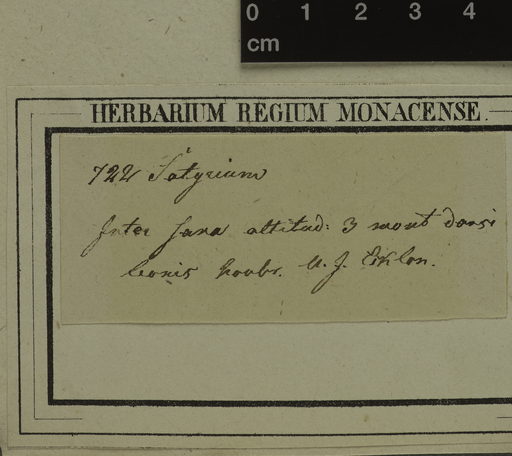 0 1 2 3 4
cm
HERBARIUM REGIUM MONACENSE.
722 Satyrium
Inter saxa altitud: 3 mont dorsi
leonis novbr. U. J. Eklon.